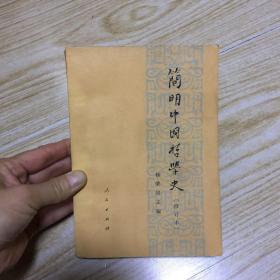 简明中国哲学史
(修订本)
杨荣国主编
人民出版社